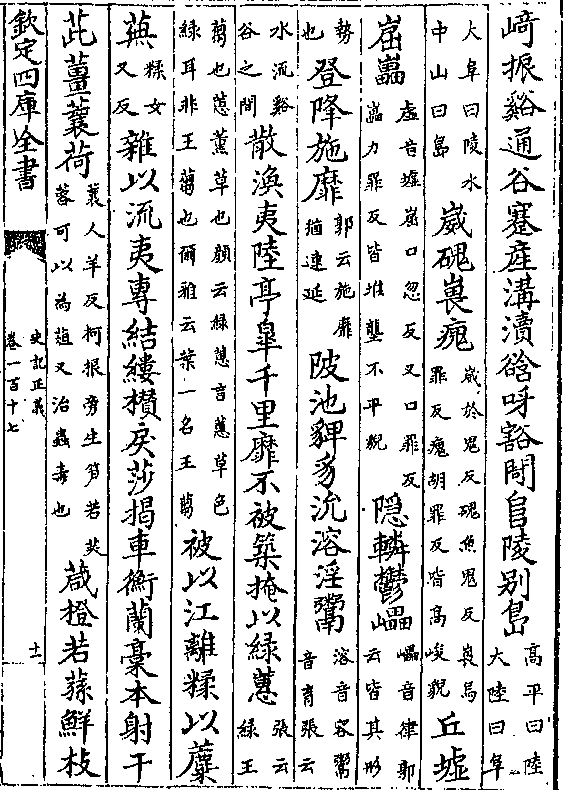 﨑振谿通谷蹇産溝瀆谽呀豁閜𨸏陵別㠀高平曰陸大陸曰阜
大阜曰陵水中山曰㠀崴磈嵔瘣崴於鬼反磈魚鬼反嵔烏罪反瘣胡罪反皆髙峻貌丘墟
崫礨虚音墟崫口忽反又口罪反礨力罪反皆堆壟不平貌隠轔鬱㠥㠥音律郭云皆其形
勢也登降施靡郭云施靡猶連延陂池貏豸沇溶淫鬻溶音容鬻音育張云
水流谿谷之間散渙夷陸亭臯千里靡不被築掩以緑蕙張云緑王
蒭也蕙薫草也顔云緑蕙言蕙草色緑耳非王蒭也爾雅云菉一名王蒭被以江離糅以蘪
蕪糅女又反雜以流夷專結縷欑戻莎掲車衡蘭稾本射干
茈薑蘘荷蘘人羊反柯根旁生筍若芙蓉可以為葅又治蟲毒也葴橙若蓀鮮枝
欽定四庫全書
史記正義
卷一百十七
十一